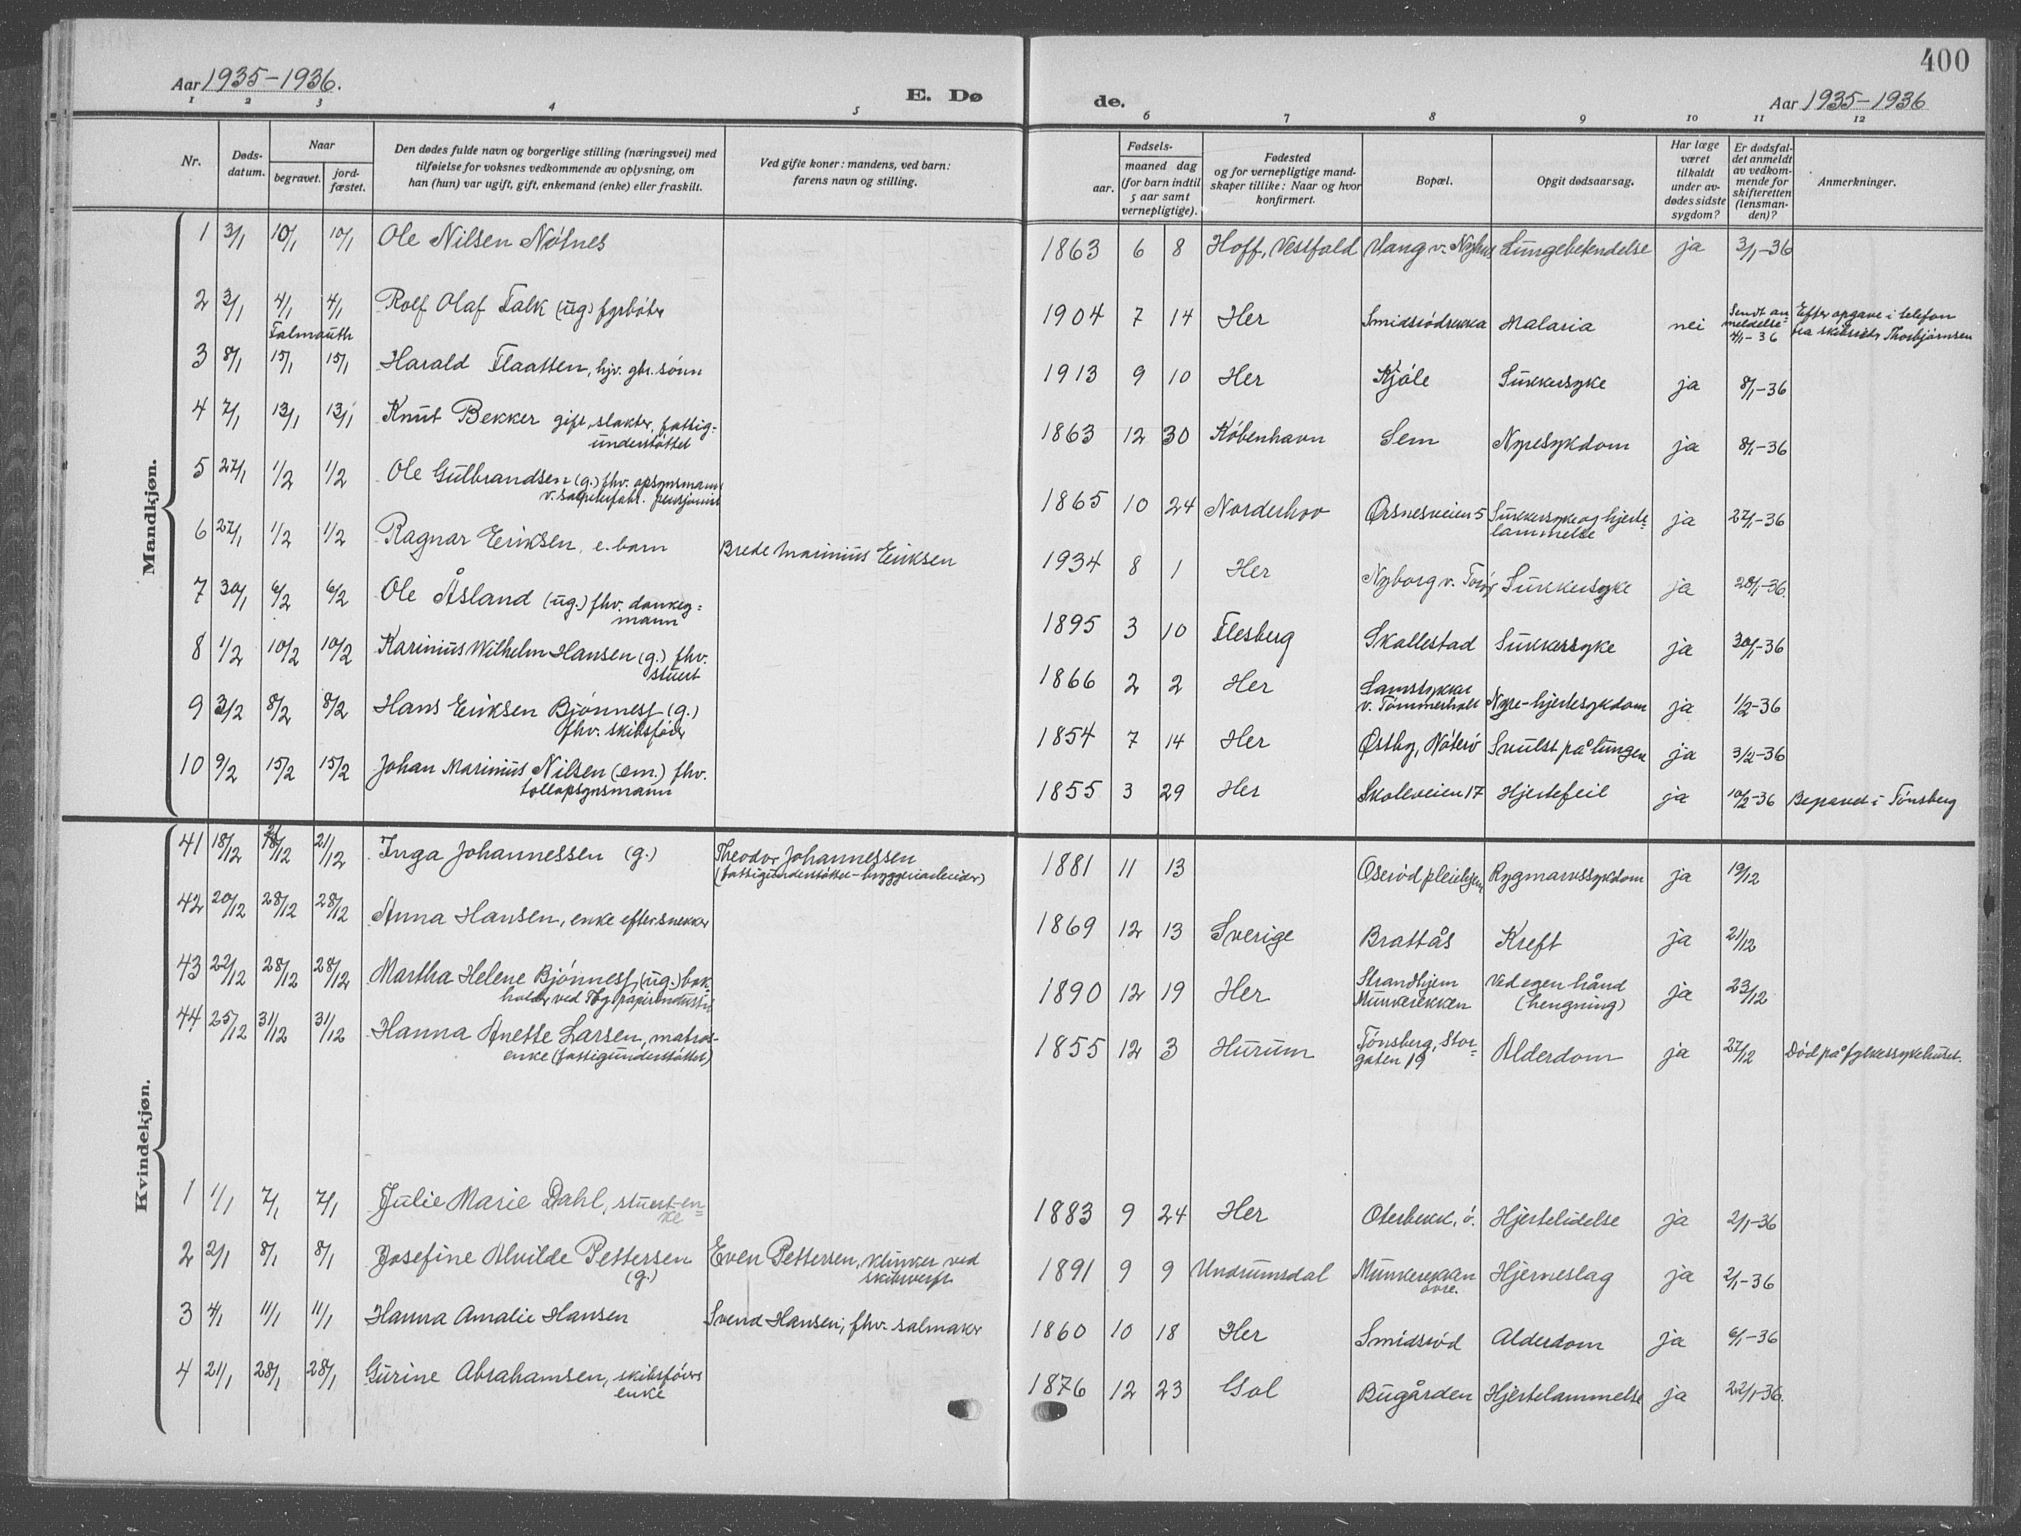 400
Aar 1935-1936.
E. Dø
de.
Aar 1935-1936
1 2 3 4 5 6 7 8 9 10 11 12
Nr.
Døds-
datum.
Naar
begravet.
jord-
fæstet.
Den dødes fulde navn og borgerlige stilling (næringsvei) med
tilføielse for voksnes vedkommende av oplysning, om
han (hun) var ugift, gift, enkemand (enke) eller fraskilt.
Ved gifte koner: mandens, ved barn:
farens navn og stilling.
Fødsels-
aar.
maaned dag
(for barn indtil
5 aar samt
vernepligtige).
Fødested
og for vernepligtige mand-
skaper tillike: Naar og hvor
konfirmert.
Bopæl.
Opgit dødsaarsag.
Har læge
været
tilkaldt
under av-
dødes sidste
sygdom?
Er dødsfal-
det anmeldt
av vedkom-
mende for
skifteretten
(lensman-
den)?
Anmerkninger.
Mandkjøn.
1 3/1 10/1 10/1 Ole Nilsen Nøtnes 1863 6 8 Hoff, Vestfold Vang v. Nyhus Lungebetendelse ja 3/1-36
2 3/1 4/1 4/1 Rolf Olaf Falk (ug) fyrbøter 1904 7 14 Her Smidsrødrekka Malaria nei Sendt an-
meldelse
4/1-36 Efter opgave i telefon
fra skibsred. Thorbjørnsen
Falmouth
3 8/1 15/1 15/1 Harald Flaatten, hjv. gbr. sønn 1913 9 10 Her Kjøle Sukkersyke ja 8/1-36
4 7/1 13/1 13/1 Knut Bekker gift, slakter, fattig-
understøttet 1863 12 30 København Sem Nyresykdom ja 8/1-36
5 27/1 1/2 1/2 Ole Gulbrandsen (g.) fhv. opsynsmann
v. pensjonist 1865 10 24 Norderhov Ørsnesveien 5 Sukkersyke og hjerte-
lammelse ja 27/1-36
6 27/1 1/2 1/2 Ragnar Eriksen, e. barn Brede Marinius Eriksen 1934 8 1 Her Nyborg v. Sukkersyke ja 28/1-36.
7 30/1 6/2 6/2 Ole Åsland (ug.) fhv. donkey-
mann 1895 3 10 Flesberg Skallestad Sukkersyke ja 30/1-36
8 1/2 10/2 10/2 Karinius Wilhelm Hansen (g.) fhv.
stuert 1866 2 2 Her
v. Tømmerholt Nyre-hjertesykdom ja 1/2-36
9 3/2 8/2 8/2 Hans Eriksen Bjønnes (g.)
fhv. skibsfører 1854 7 14 Her Østby, Nøterø Svulst på lungen ja 3/2-36
10 9/2 15/2 15/2 Johan Marinius Nilsen (em.) fhv.
tollopsynsmann 1855 3 29 Her Skoleveien 17 Hjertefeil ja 10/2-36 Begravet i Tønsberg
Kvindekjøn.
41 18/12 21/12 21/12 Inga Johannessen (g.) Theodor Johannessen
(fattigunderstøttet - bryggeriarbeider) 1881 11 13 Oserød pleiehjem Rygmarvssykdom ja 19/12
42 20/12 28/12 28/12 Anna Hansen, enke efter snekker 1869 12 13 Sverige Brattås Kreft ja 21/12
43 22/12 28/12 28/12 Martha Helene Bjønnes, (ug.) bok-
holder ved Tbg. papirindustri 1890 12 19 Her Strandhjem
Munkerekken Ved egen hånd
(hengning) ja 23/12
44 25/12 31/12 31/12 Hanna Anette Larsen, matros-
enke (fattigunderstøttet) 1855 12 3 Hurum Tønsberg, Stor-
gaten 19 Alderdom ja 27/12 Død på fylkessykehuset.
1 1/1 7/1 7/1 Julie Marie Dahl, stuert-en-
ke 1883 9 24 Her Oterbekk, ø. Hjertelidelse ja 2/1-36
2 2/1 8/1 8/1 Josefine Alvilde Pettersen
(g.) Even Pettersen, klinker ved
skibsverft 1891 9 9 Undrumsdal Munkerekkan
øvre. Hjerneslag ja 2/1-36
3 4/1 11/1 11/1 Hanna Amalie Hansen Svend Hansen, fhv. salmaker 1860 10 18 Her Smidsrød Alderdom ja 6/1-36
4 21/1 28/1 28/1 Gurine Abrahamsen, skibsførers
enke 1876 12 23 Gol Bugården Hjertelammelse ja 22/1-36.